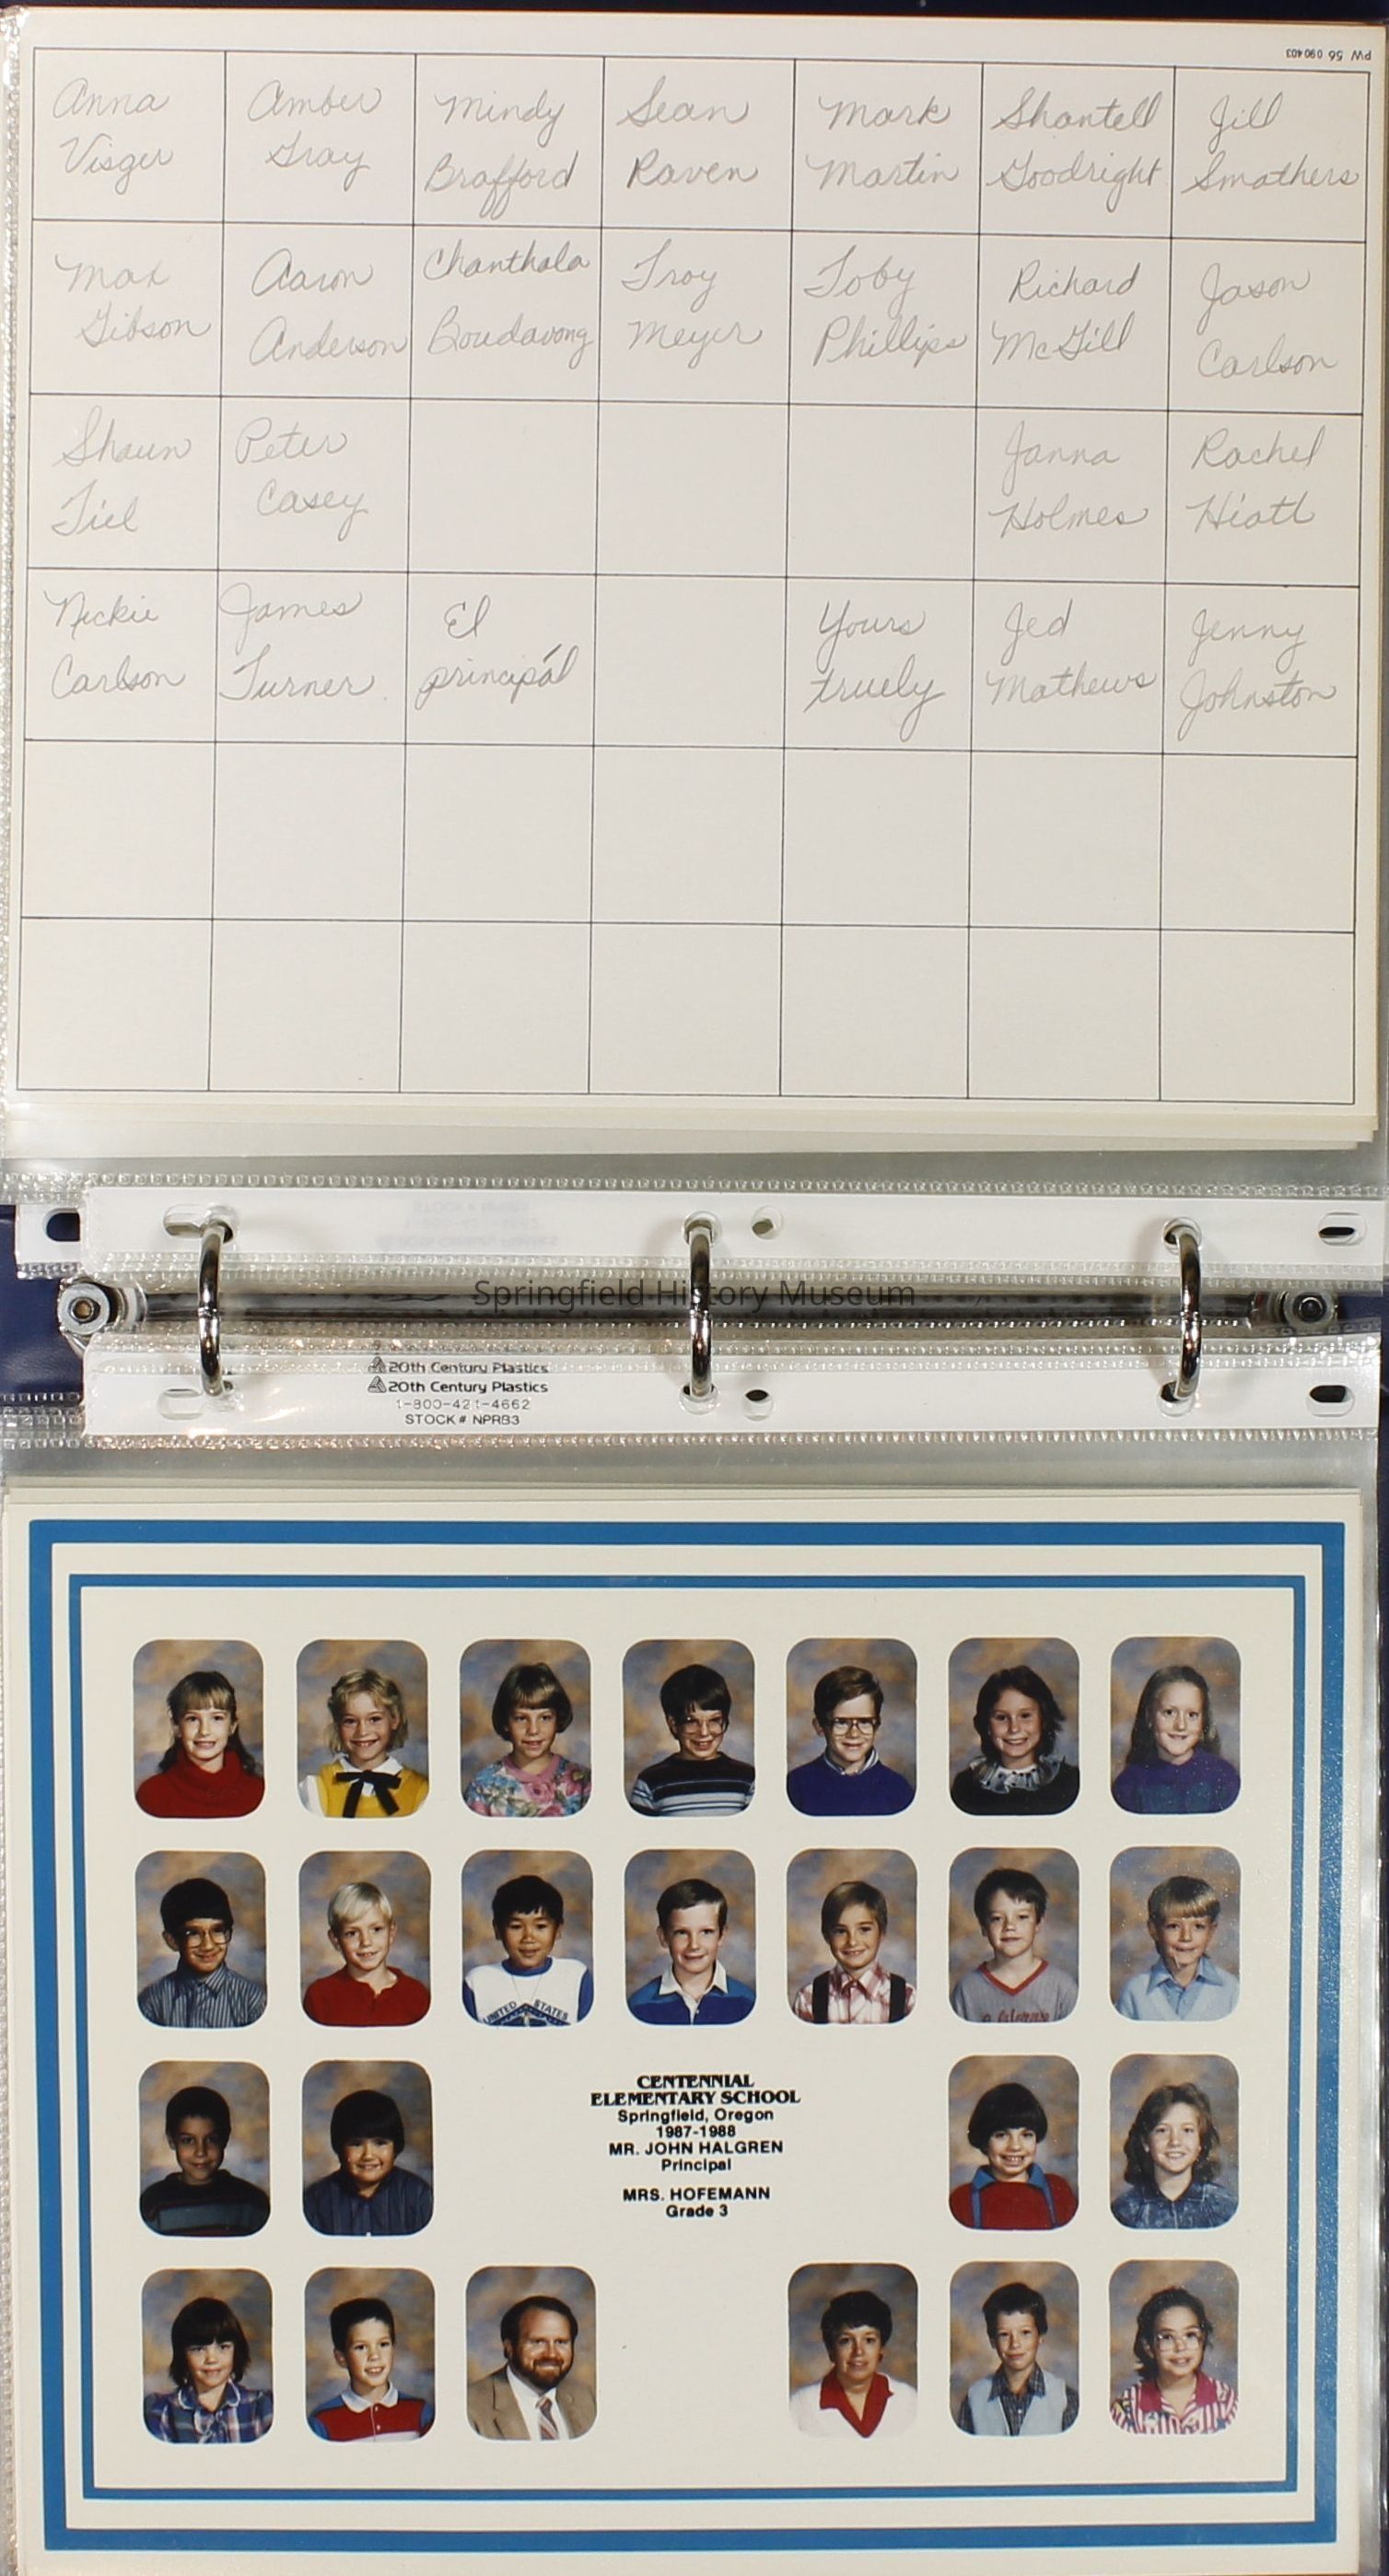 PW 56 090403
Anna Visger
Amber Gray
Mindy Brafford
Sean Raven
Mark Martin
Shantell Goodright
Jill Smathers
Max Gibson
Aaron Anderson
Chanthala Boudavong
Troy Meyer
Toby Phillips
Richard McGill
Jason Carlson
Shaun Tiel
Peter Casey
Janna Holmes
Rachel Hiatt
Nickie Carlson
James Turner
El principál
Yours truely
Jed Mathews
Jenny Johnston
Springfield History Museum
20th Century Plastics
20th Century Plastics
1-800-421-4662
STOCK # NPRB3
UNITED STATES
CENTENNIAL
ELEMENTARY SCHOOL
Springfield, Oregon
1987-1988
MR. JOHN HALGREN
Principal
MRS. HOFEMANN
Grade 3